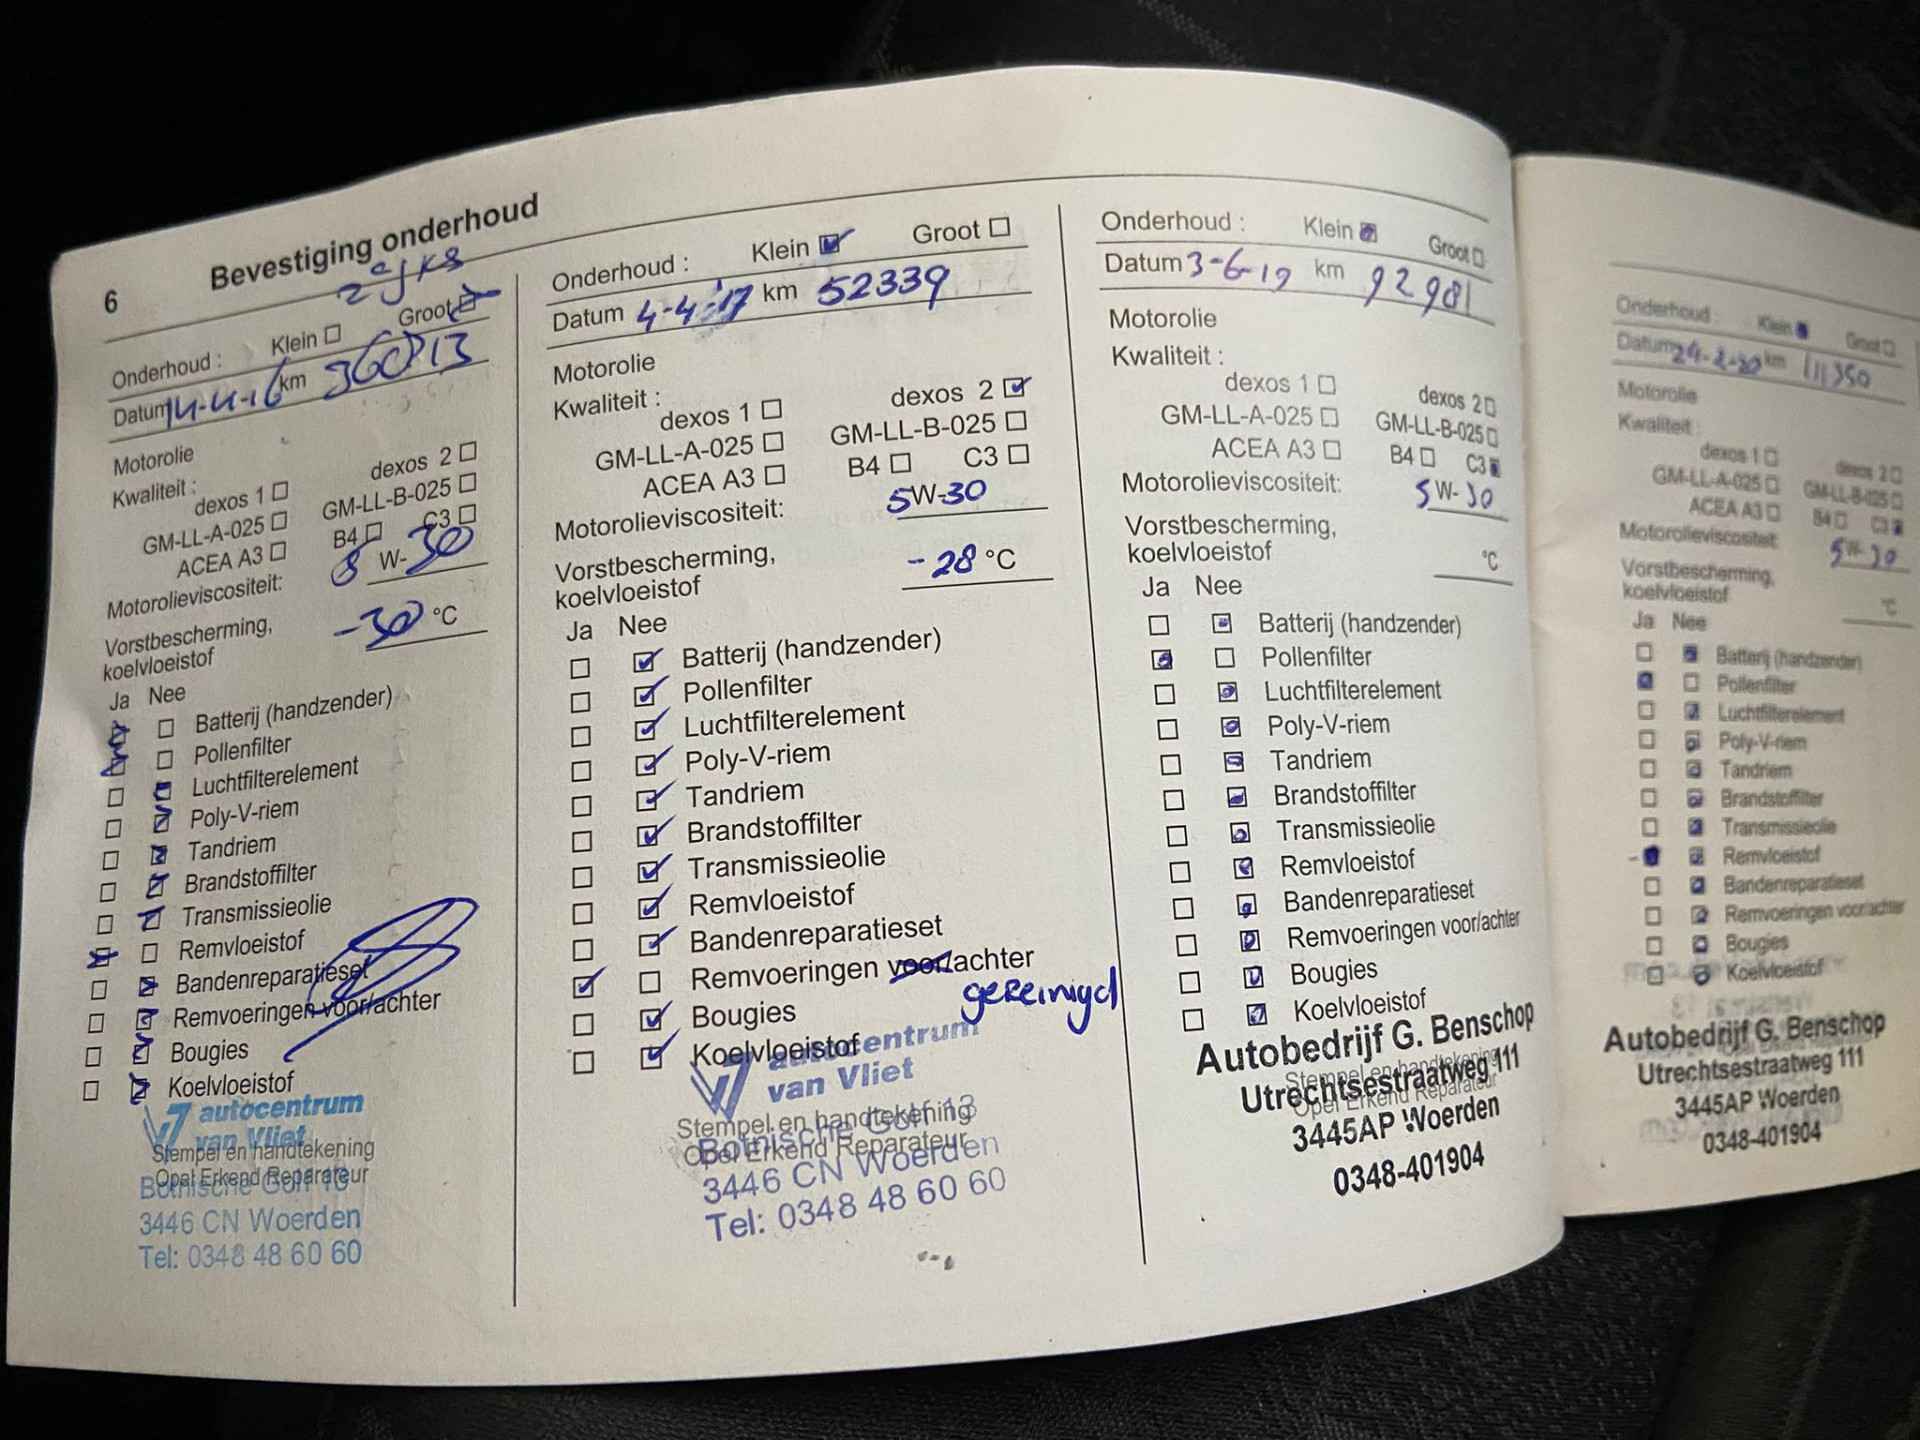 6 Bevestiging onderhoud
Onderhoud : Klein Groot
Datum 14-4-16 km
Motorolie
Kwaliteit :
dexos 1 dexos 2
GM-LL-A-025 GM-LL-B-025
ACEA A3 B4 C3
Motorolieviscositeit: W-30
Vorstbescherming, koelvloeistof -30 °C
Ja Nee
Batterij (handzender)
Pollenfilter
Luchtfilterelement
Poly-V-riem
Tandriem
Brandstoffilter
Transmissieolie
Remvloeistof
Bandenreparatieset
Remvoeringen voor/achter
Bougies
Koelvloeistof
autocentrum
van Vliet
Stempel en handtekening
Opel Erkend Reparateur
Botnische Golf 13
3446 CN Woerden
Tel: 0348 48 60 60
Onderhoud : Klein Groot
Datum 4-4-'17 km 52339
Motorolie
Kwaliteit :
dexos 1 dexos 2
GM-LL-A-025 GM-LL-B-025
ACEA A3 B4 C3
Motorolieviscositeit: 5W-30
Vorstbescherming,
koelvloeistof -28 °C
Ja Nee
Batterij (handzender)
Pollenfilter
Luchtfilterelement
Poly-V-riem
Tandriem
Brandstoffilter
Transmissieolie
Remvloeistof
Bandenreparatieset
Remvoeringen voor/achter
gereinigd
Bougies
Koelvloeistof
autocentrum
van Vliet
Stempel en handtekening
Botnische Golf 13
Opel Erkend Reparateur
3446 CN Woerden
Tel: 0348 48 60 60
Onderhoud : Klein Groot
Datum 3-6-19 km 92981
Motorolie
Kwaliteit :
dexos 1 dexos 2
GM-LL-A-025 GM-LL-B-025
ACEA A3 B4 C3
Motorolieviscositeit: 5W-30
Vorstbescherming,
koelvloeistof °C
Ja Nee
Batterij (handzender)
Pollenfilter
Luchtfilterelement
Poly-V-riem
Tandriem
Brandstoffilter
Transmissieolie
Remvloeistof
Bandenreparatieset
Remvoeringen voor/achter
Bougies
Koelvloeistof
Autobedrijf G. Benschop
Stempel en handtekening
Utrechtsestraatweg 111
Opel Erkend Reparateur
3445AP Woerden
0348-401904
Onderhoud : Klein Groot
Datum 24-2-20 km 111350
Motorolie
Kwaliteit :
dexos 1 dexos 2
GM-LL-A-025 GM-LL-B-025
ACEA A3 B4 C3
Motorolieviscositeit: 5W-30
Vorstbescherming,
koelvloeistof °C
Ja Nee
Batterij (handzender)
Pollenfilter
Luchtfilterelement
Poly-V-riem
Tandriem
Brandstoffilter
Transmissieolie
Remvloeistof
Bandenreparatieset
Remvoeringen voor/achter
Bougies
Koelvloeistof
Autobedrijf G. Benschop
Utrechtsestraatweg 111
3445AP Woerden
0348-401904